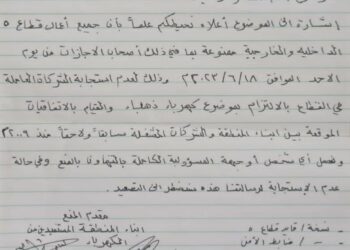 إشارة الى الموضوع أعلاه نحيطكم علماً بأن جميع أعمال قطاع ٥
الداخلية والخارجية ممنوعة بما في ذلك أصحاب الاجازات من يوم
الاحد الموافق ٢٠٢٣/٦/١٨ وذلك لعدم استجابة الشركات العاملة
في القطاع بالالتزام بموضوع كهرباء ذهباء والقيام بالاتفاقيات
الموقعة بين ابناء المنطقة والشركات المشغلة سابقاً ولاحقاً منذ ٢٠٠٩م
أي شخص أو جهة المسؤولية الكاملة بالتهاون بالمنع وفي حالة
عدم الاستجابة لرسالتنا هذه سنضطر الى التصعيد
مقدم المنع
ابناء المنطقة المستفيدين من
الكهرباء
نسخة / قائد قطاع ٥
ضابط الأمن